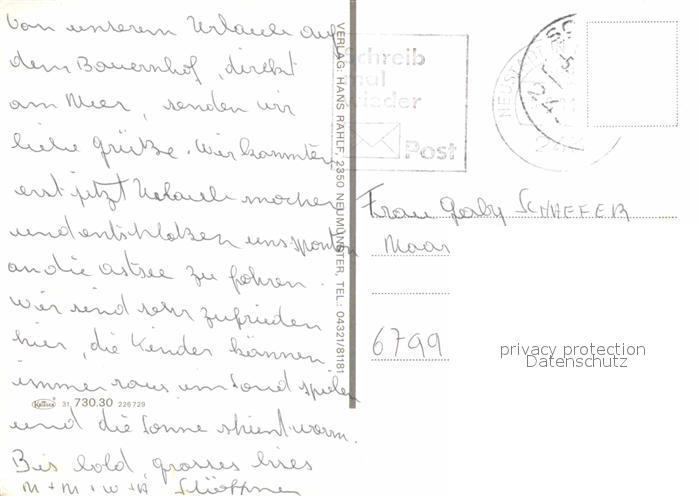 Von unserem Urlaub auf
dem Bauernhof, direkt
am Meer, senden wir
liebe Grüße. Wir konnten
erst jetzt Urlaub machen
und entschloßen uns spontan
an die Ostsee zu fahren.
Wir sind sehr zufrieden
hier, die Kinder können
immer raus im Sand spielen
und die Sonne scheint warm.
Bis bald, grosses
M + M + W + A
31 730.30 226729
VERLAG: HANS RAHLF, 2350 NEUMÜNSTER, TEL.: 04321/81181
Schreib
mal
wieder
Post
NEUSTADT
Frau Gaby SCHAEFER
6799
privacy protection
Datenschutz